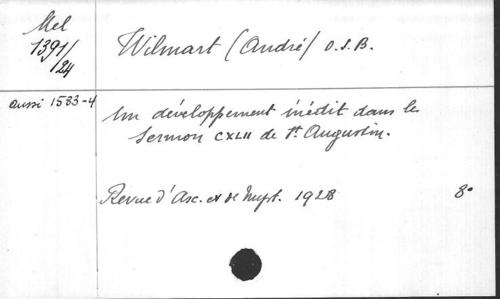 Mel
1391/
24
Wilmart (André) O.S.B.
aussi 1583-4
Un développement inédit dans le
Sermon CXLII de St Augustin.
Revue d'Asc. et de Myst. 1928 8°